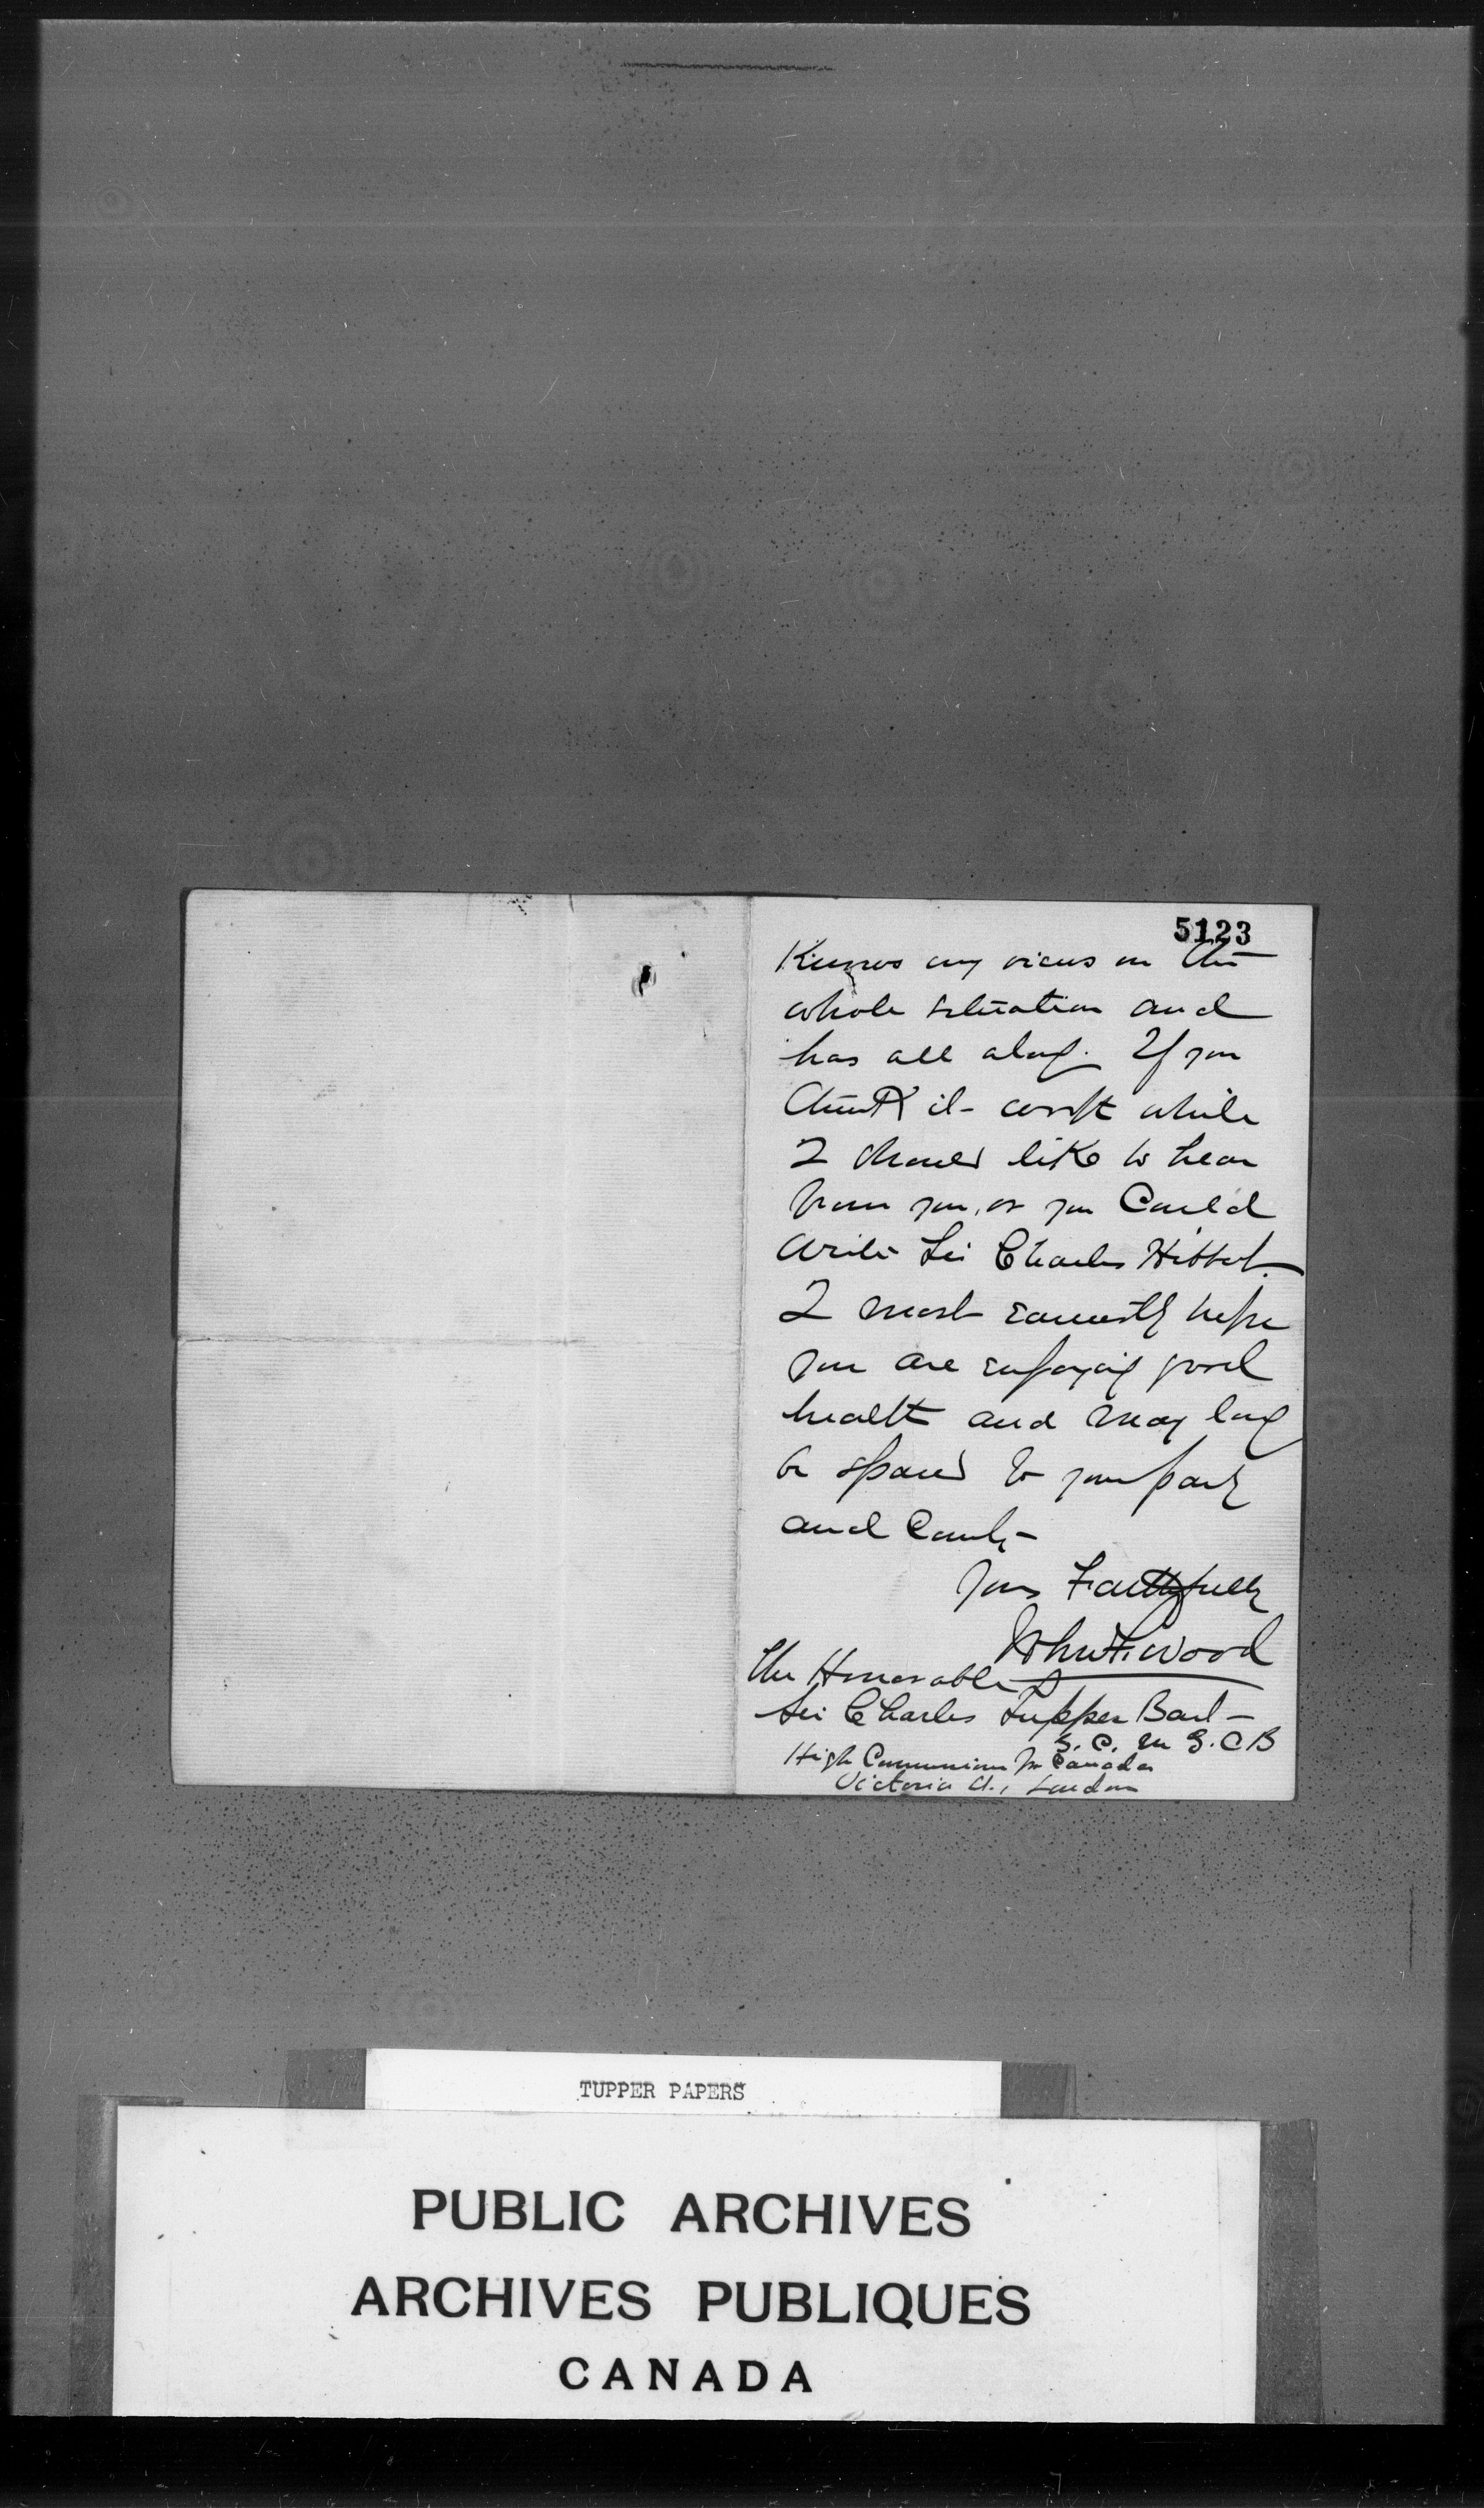 5123
Knows my views on the
whole situation and
has all along. If you
think it worth while
I should like to hear
from you, or you Could
write Sir Charles Hibbert.
I most earnestly hope
you are enjoying good
health and may long
be spared to your party
and Country
Yours Faithfully
John F. Wood
The Honorable
Sir Charles Tupper Bart
G. C. M G. C B
High Commissioner for Canada
Victoria St., London
TUPPER PAPERS
PUBLIC ARCHIVES
ARCHIVES PUBLIQUES
CANADA